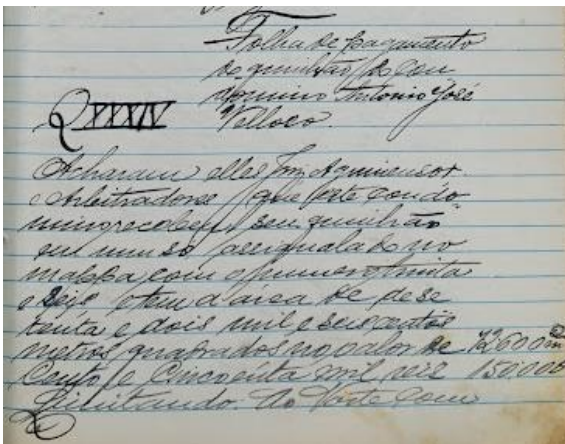 Folha de pagamento
de quinhão do con
domino Antonio José
XXXIV Velloco.
Acharam elles Juiz Agrimensor
e Arbitradores que este condo-
mino recebeu seu quinhão
em um só assignalado no
mappa com o numero trinta
e seis e tem d'área de se
tenta e dois mil e seiscentos
metros quadrados no valor de 72600 m²
Cento e Cincoenta mil reis 150.000
Limitando. Ao Norte com